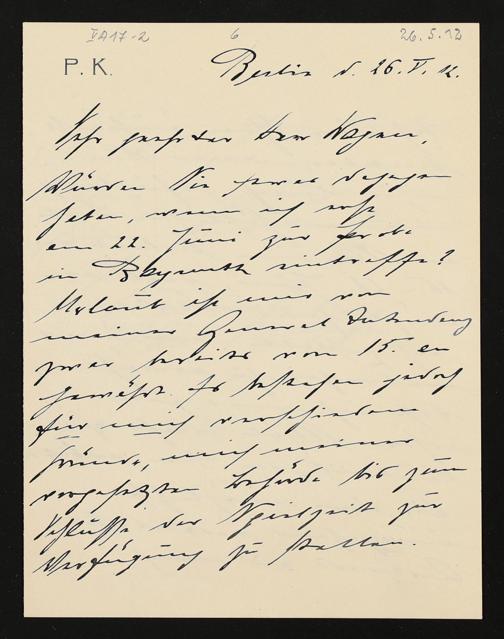 VA17-2 6 26.5.12
P. K.
Berlin d. 26. V. 12.
Sehr geehrter Herr Wagner,
Würden Sie etwas dagegen
haben, wenn ich erst
am 22. Juni zur Probe
in Bayreuth eintreffe?
Urlaub ist mir von
meiner General Intendanz
zwar bereits vom 15. an
gewährt. Es bestehen jedoch
für mich verschiedene
Gründe, mich meiner
vorgesetzten Behörde bis zum
Schlusse der Spielzeit zur
Verfügung zu stellen.